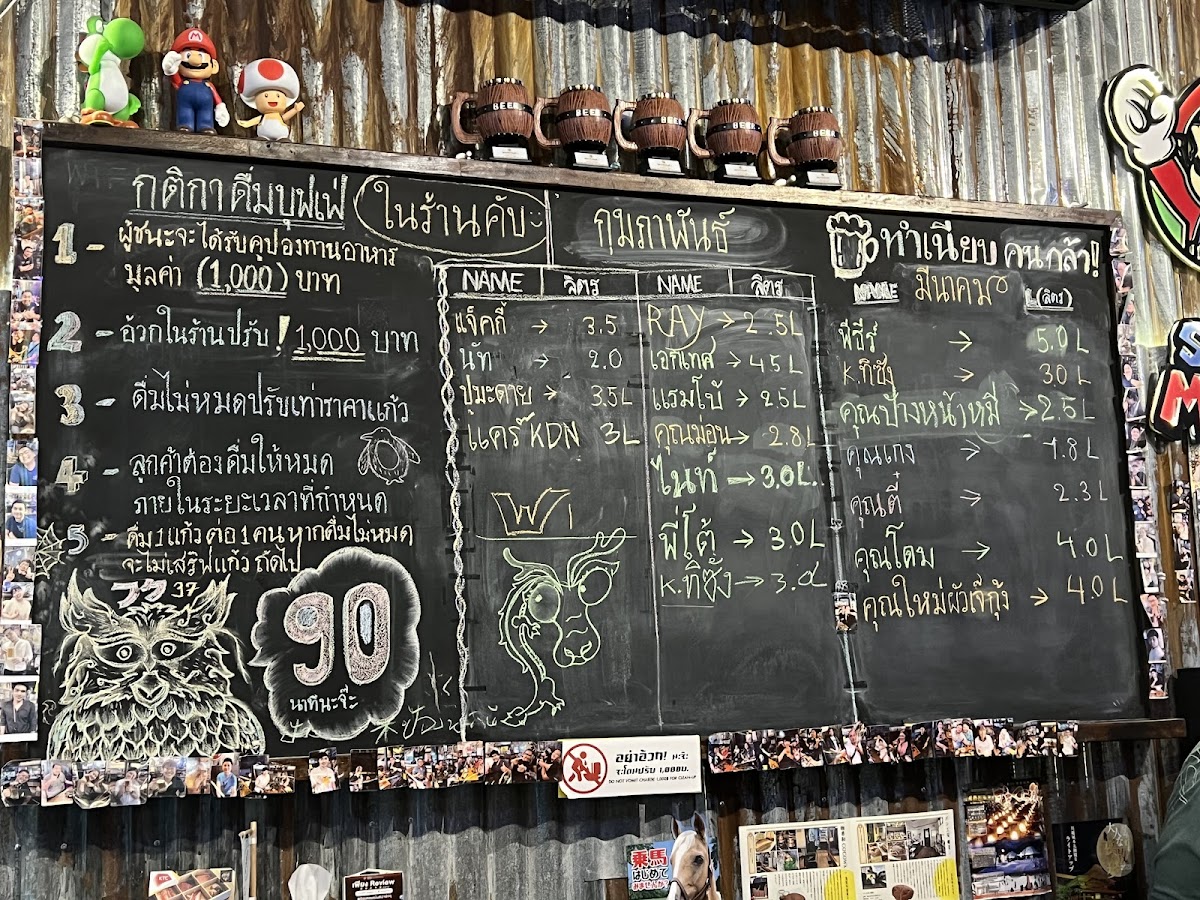 กติกาดื่มบุฟเฟ่ ในร้านคับ
1 - ผู้ชนะจะได้รับคูปองทานอาหาร
มูลค่า (1,000) บาท
2 - อ้วกในร้านปรับ! 1,000 บาท
3 - ดื่มไม่หมดปรับเท่าราคาแก้ว
4 - ลูกค้าต้องดื่มให้หมด
ภายในระยะเวลาที่กำหนด
5 - ดื่ม 1 แก้ว ต่อ 1 คน หากดื่มไม่หมด
จะไม่เสริฟแก้ว ถัดไป
90
นาทีนะจ๊ะ
กุมภาพันธ์
NAME ลิตร
แจ็คกี้ → 3.5
นัท → 2.0
ปูมะดาย → 3.5L
แคร์ KDN 3L
NAME ลิตร
RAY → 2.5L
เอกเทศ → 4.5L
แรมโบ้ → 2.5L
คุณมอน → 2.8L
ไนท์ → 3.0L.
พี่โต้ → 3.0L
K.ทิซั้ง → 3.0L
ทำเนียบ คนกล้า!
NAME มีนาคม L(ลิตร)
พีอีร์ → 5.0 L
K.ทิซั้ง → 3.0 L
คุณป้างหน้าหมี → 2.5L
คุณเก่ง → 1.8 L
คุณตี๋ → 2.3 L
คุณโดม → 4.0L
คุณใหม่ผัวเจ๊กุ้ง → 4.0L
BEER
BEER
BEER
BEER
BEER
อย่าอ้วก! นะจ๊ะ
จะโดนปรับ 1,000บ.
DO NOT VOMIT CHARGE 1,000฿ FOR CLEAN-UP
KTC
เพียง Review
乗馬
はじめて
みませんか